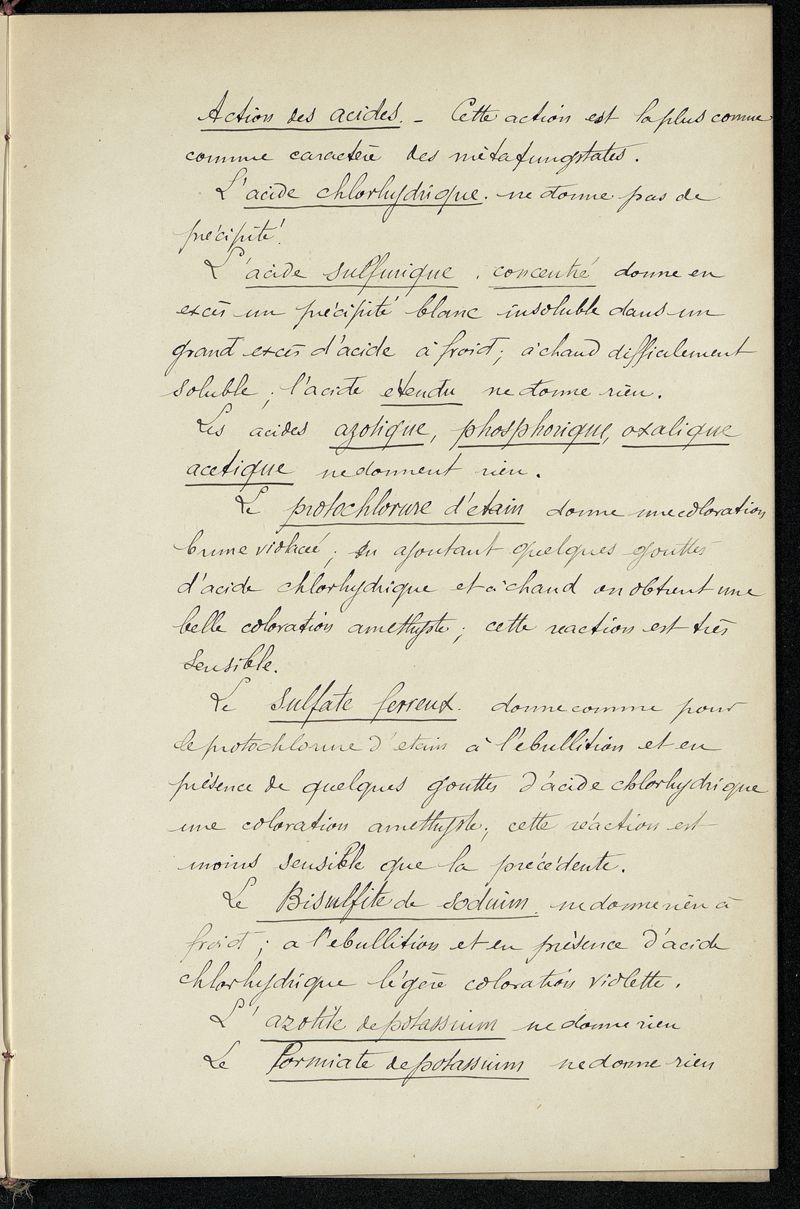 Action des acides. - Cette action est la plus connue
comme caractère des métatungstates.
L'acide chlorhydrique. ne donne pas de
précipité.
L'acide sulfurique. concentré donne en
excès un précipité blanc insoluble dans un
grand excès d'acide à froid; à chaud difficilement
soluble; l'acide étendu ne donne rien.
Les acides azotique, phosphorique, oxalique
acetique ne donnent rien.
Le protochlorure d'etain donne une coloration
brune violacée; en ajoutant quelques gouttes
d'acide chlorhydrique et à chaud on obtient une
belle coloration amethyste; cette reaction est très
sensible.
Le sulfate ferreux. donne comme pour
le protochlorure d'etain à l'ebullition et en
présence de quelques gouttes d'acide chlorhydrique
une coloration amethyste; cette réaction est
moins sensible que la précédente.
Le Bisulfite de sodium. ne donne rien à
froid; a l'ebullition et en présence d'acide
chlorhydrique légère coloration violette.
L'azotite de potassium ne donne rien
Le Formiate de potassium ne donne rien